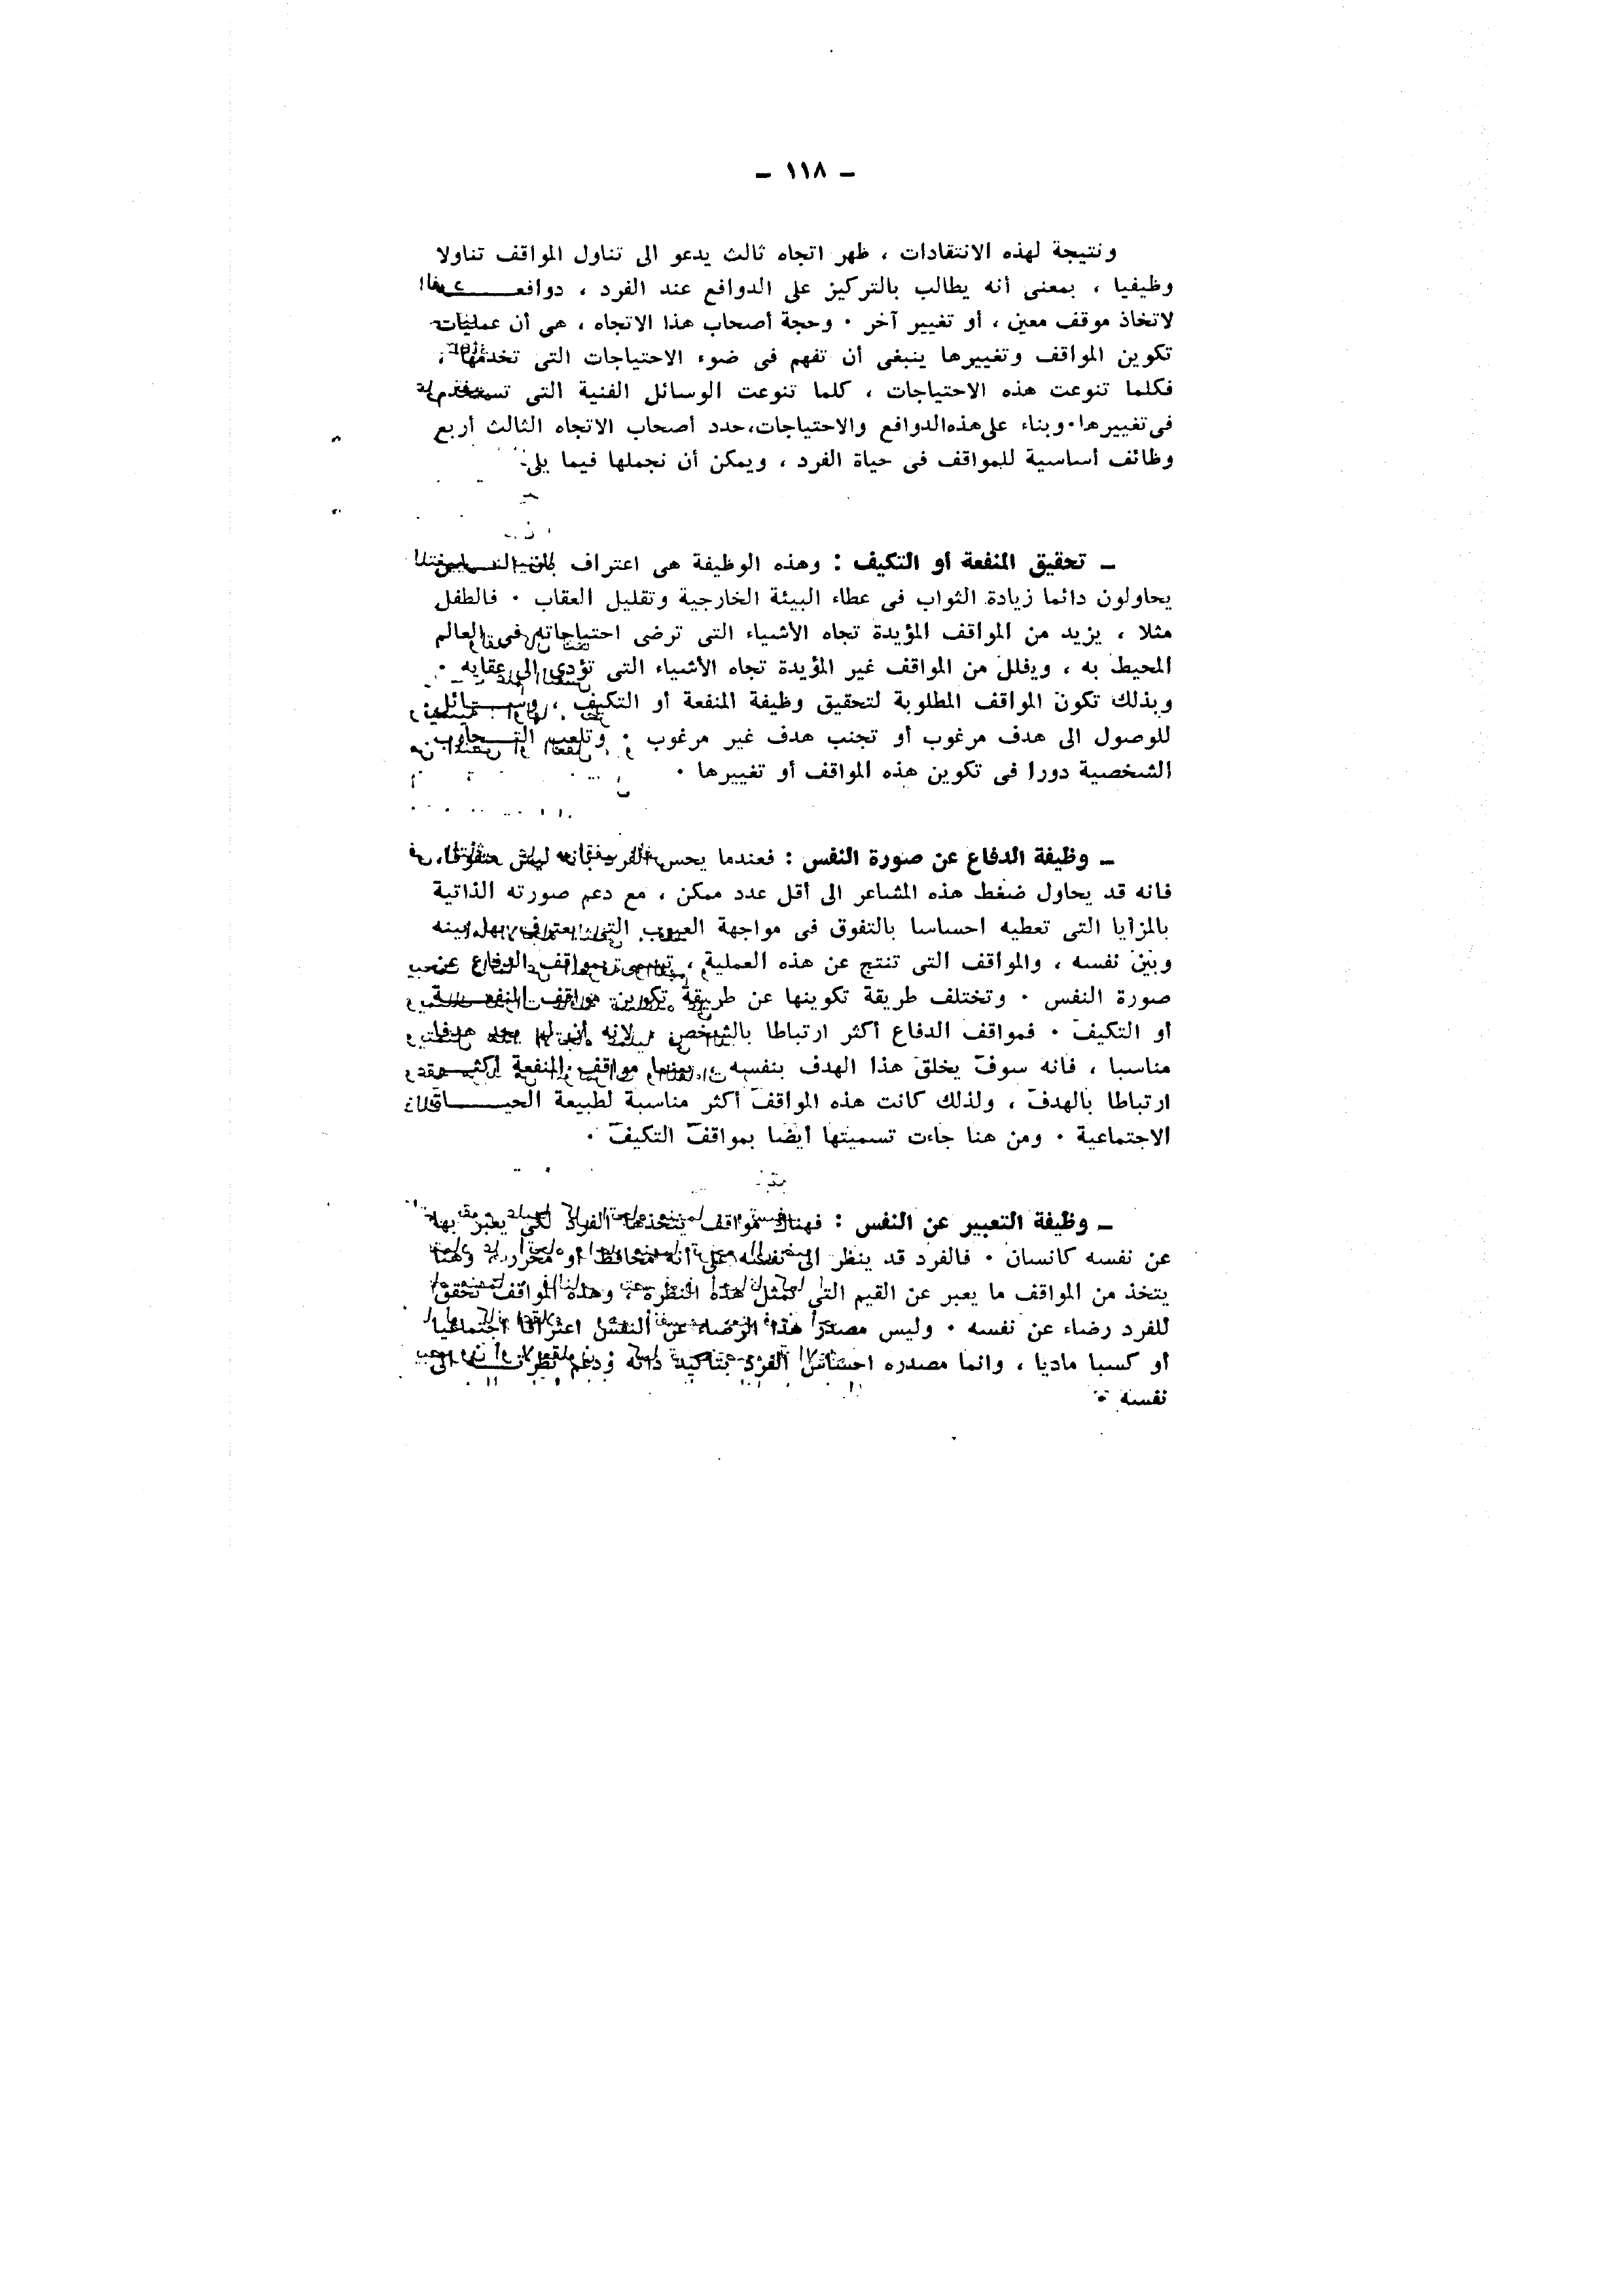 – ١١٨ –
ونتيجة لهذه الانتقادات ، ظهر اتجاه ثالث يدعو الى تناول المواقف تناولا
وظيفيا ، بمعنى أنه يطالب بالتركيز على الدوافع عند الفرد ، دوافعـــه
لاتخاذ موقف معين ، أو تغيير آخر . وحجة أصحاب هذا الاتجاه ، هى أن عمليات
تكوين المواقف وتغييرها ينبغى أن تفهم فى ضوء الاحتياجات التى تخدمها ،
فكلما تنوعت هذه الاحتياجات ، كلما تنوعت الوسائل الفنية التى تستخدم
فى تغييرها . وبناء على هذه الدوافع والاحتياجات، حدد أصحاب الاتجاه الثالث أربع
وظائف أساسية للمواقف فى حياة الفرد ، ويمكن أن نجملها فيما يلى:
– تحقيق المنفعة أو التكيف : وهذه الوظيفة هى اعتراف بأن النـــاس
يحاولون دائما زيادة الثواب فى عطاء البيئة الخارجية وتقليل العقاب . فالطفل
مثلا ، يزيد من المواقف المؤيدة تجاه الأشياء التى ترضى احتياجاته فى العالم
المحيط به ، ويقلل من المواقف غير المؤيدة تجاه الأشياء التى تؤدى الى عقابه .
وبذلك تكون المواقف المطلوبة لتحقيق وظيفة المنفعة أو التكيف ، وســـائل
للوصول الى هدف مرغوب أو تجنب هدف غير مرغوب . وتلعب التـــجارب
الشخصية دورا فى تكوين هذه المواقف أو تغييرها .
– وظيفة الدفاع عن صورة النفس : فعندما يحس الفرد بأنه ليس متفوقا،
فانه قد يحاول ضغط هذه المشاعر الى أقل عدد ممكن ، مع دعم صورته الذاتية
بالمزايا التى تعطيه احساسا بالتفوق فى مواجهة العيوب التى يعترف بها بينه
وبين نفسه ، والمواقف التى تنتج عن هذه العملية ، تسمى بمواقف الدفاع عن
صورة النفس . وتختلف طريقة تكوينها عن طريقة تكوين مواقف المنفعـــة
أو التكيف . فمواقف الدفاع أكثر ارتباطا بالشخص ، لانه أن لم يجد هدفا
مناسبا ، فانه سوف يخلق هذا الهدف بنفسه ، بينما مواقف المنفعة أكثـــر
ارتباطا بالهدف ، ولذلك كانت هذه المواقف أكثر مناسبة لطبيعة الحيـــاة
الاجتماعية . ومن هنا جاءت تسميتها أيضا بمواقف التكيف .
– وظيفة التعبير عن النفس : فهناك مواقف يتخذها الفرد لكى يعبر بها
عن نفسه كانسان . فالفرد قد ينظر الى نفسه على أنه محافظ أو متحرر ، وهنا
يتخذ من المواقف ما يعبر عن القيم التى تمثل هذه النظرة ، وهذه المواقف تحقق
للفرد رضاء عن نفسه . وليس مصدر هذا الرضاء عن النفس اعترافا اجتماعيا
أو كسبا ماديا ، وانما مصدره احساس الفرد بتأكيد ذاته ودعم نظرتـــه الى
نفسه .